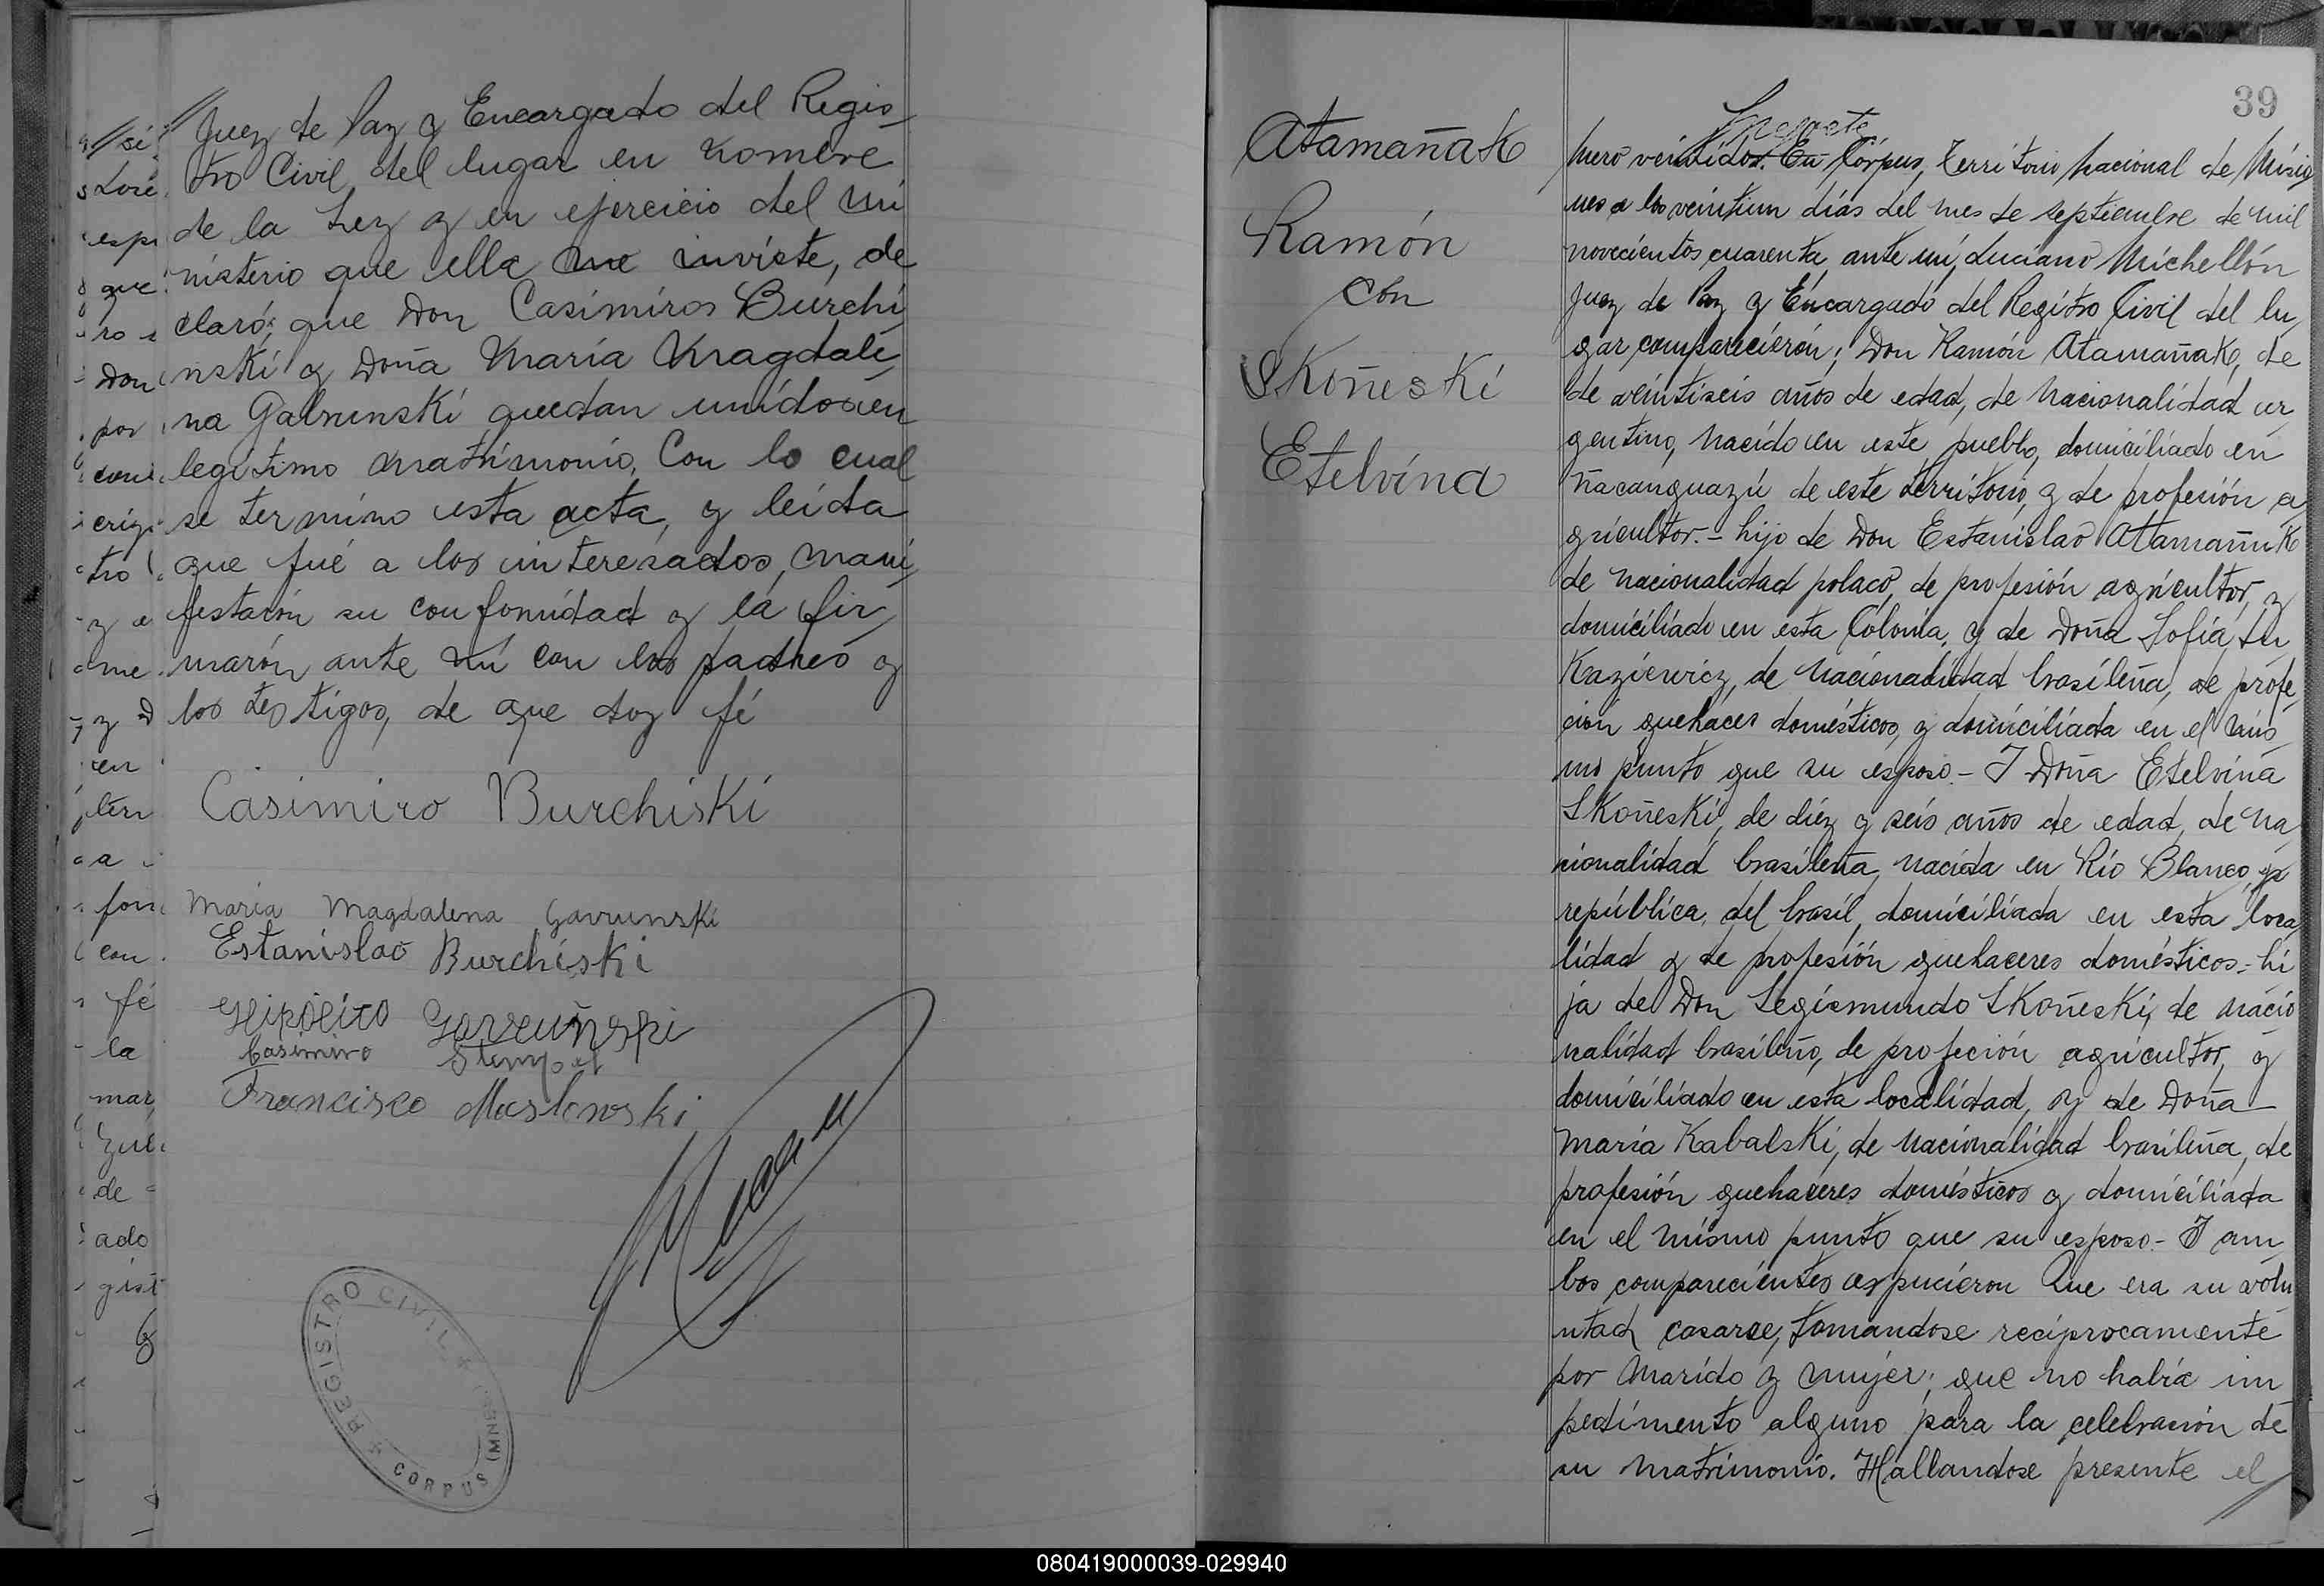 Juez de Paz y Encargado del Regis
tro Civil del lugar en nombre
de la Ley y en ejercicio del mi
nisterio que ella me inviste, de
claró; que Don Casimiros Burchi
nski y Doña María Magdale
na Gabrunski quedan unidos en
legítimo matrimonio. Con lo cual
se termino esta acta, y leida
que fué a los interesados, mani
festarón su conformidad y la fir
marón ante mí con los padres y
los testigos, de que doy fé
Casimiro Burchiski
Maria Magdalena Gavrunski
Estanislao Burchiski
Hipólito
Casimiro Stempel
Francisco Maslowski
REGISTRO CIVIL
CORPUS (MNES)
//si
dose
espi
que
ro
Don
por
erig
tro
y a
me
y D
en
ter
a
fon
con
fé
la
mar
de
ado
gist
39
Atamañak
Ramón
con
Skoñeski
Etelvina
Nuero veintidos. En Córpus, Territorio Nacional de Misio
nes a los veintiun días del mes de septiembre de mil
novecientos cuarenta, ante mí, Luciano Michellón
Juez de Paz y Encargado del Registro Civil del lu
gar comparecierón; Don Ramón Atamañak, de
de veintiseis años de edad, de nacionalidad ar
gentino, nacido en este pueblo, domiciliado en
Ñacanguazú de este territorio, y de profesión a
gricultor.- hijo de Don Estanislao Atamañuk
de nacionalidad polaco, de profesión agricultor, y
domiciliado en esta Colonia, y de Doña Sofía Lu
kaziewicz, de nacionalidad brasileña, de profe
ción quehacer domésticos, y domiciliada en el mis
mo punto que su esposo.- I Doña Etelvina
Skoñeski, de diez y seis años de edad, de na
cionalidad brasileña, nacida en Río Blanco,
república del brasil, domiciliada en esta loca
lidad y de profesión quehaceres domésticos.- hi
ja de Don Segismundo Skoñeski, de nacio
nalidad brasileño, de profeción agricultor, y
domiciliado en esta localidad, y de Doña
María Kabalski, de nacionalidad brasileña, de
profesión quehaceres domésticos y domiciliada
en el mismo punto que su esposo.- I am
bos comparecientes expucieron Que era su volu
ntad casarse, tomandose reciprocamente
por marido y mujer; que no habia im
pedimento alguno para la celebración de
su matrimonio. Hallandose presente el
080419000039-029940